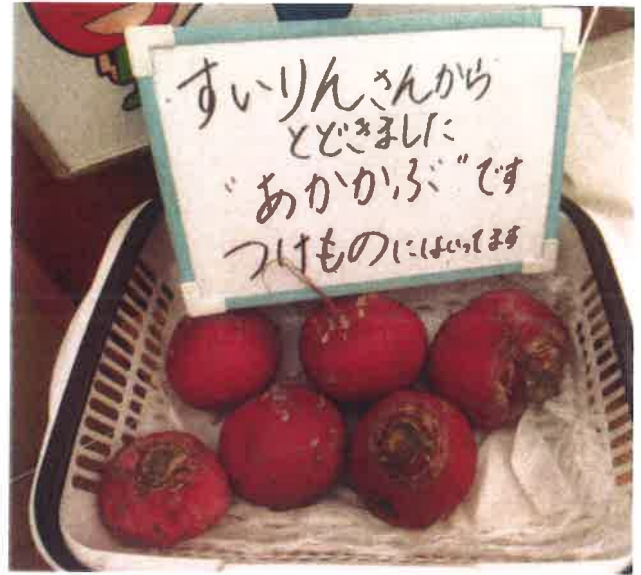 すいりんさんから
とどきました
"あかかぶ"です
つけものにはいってます